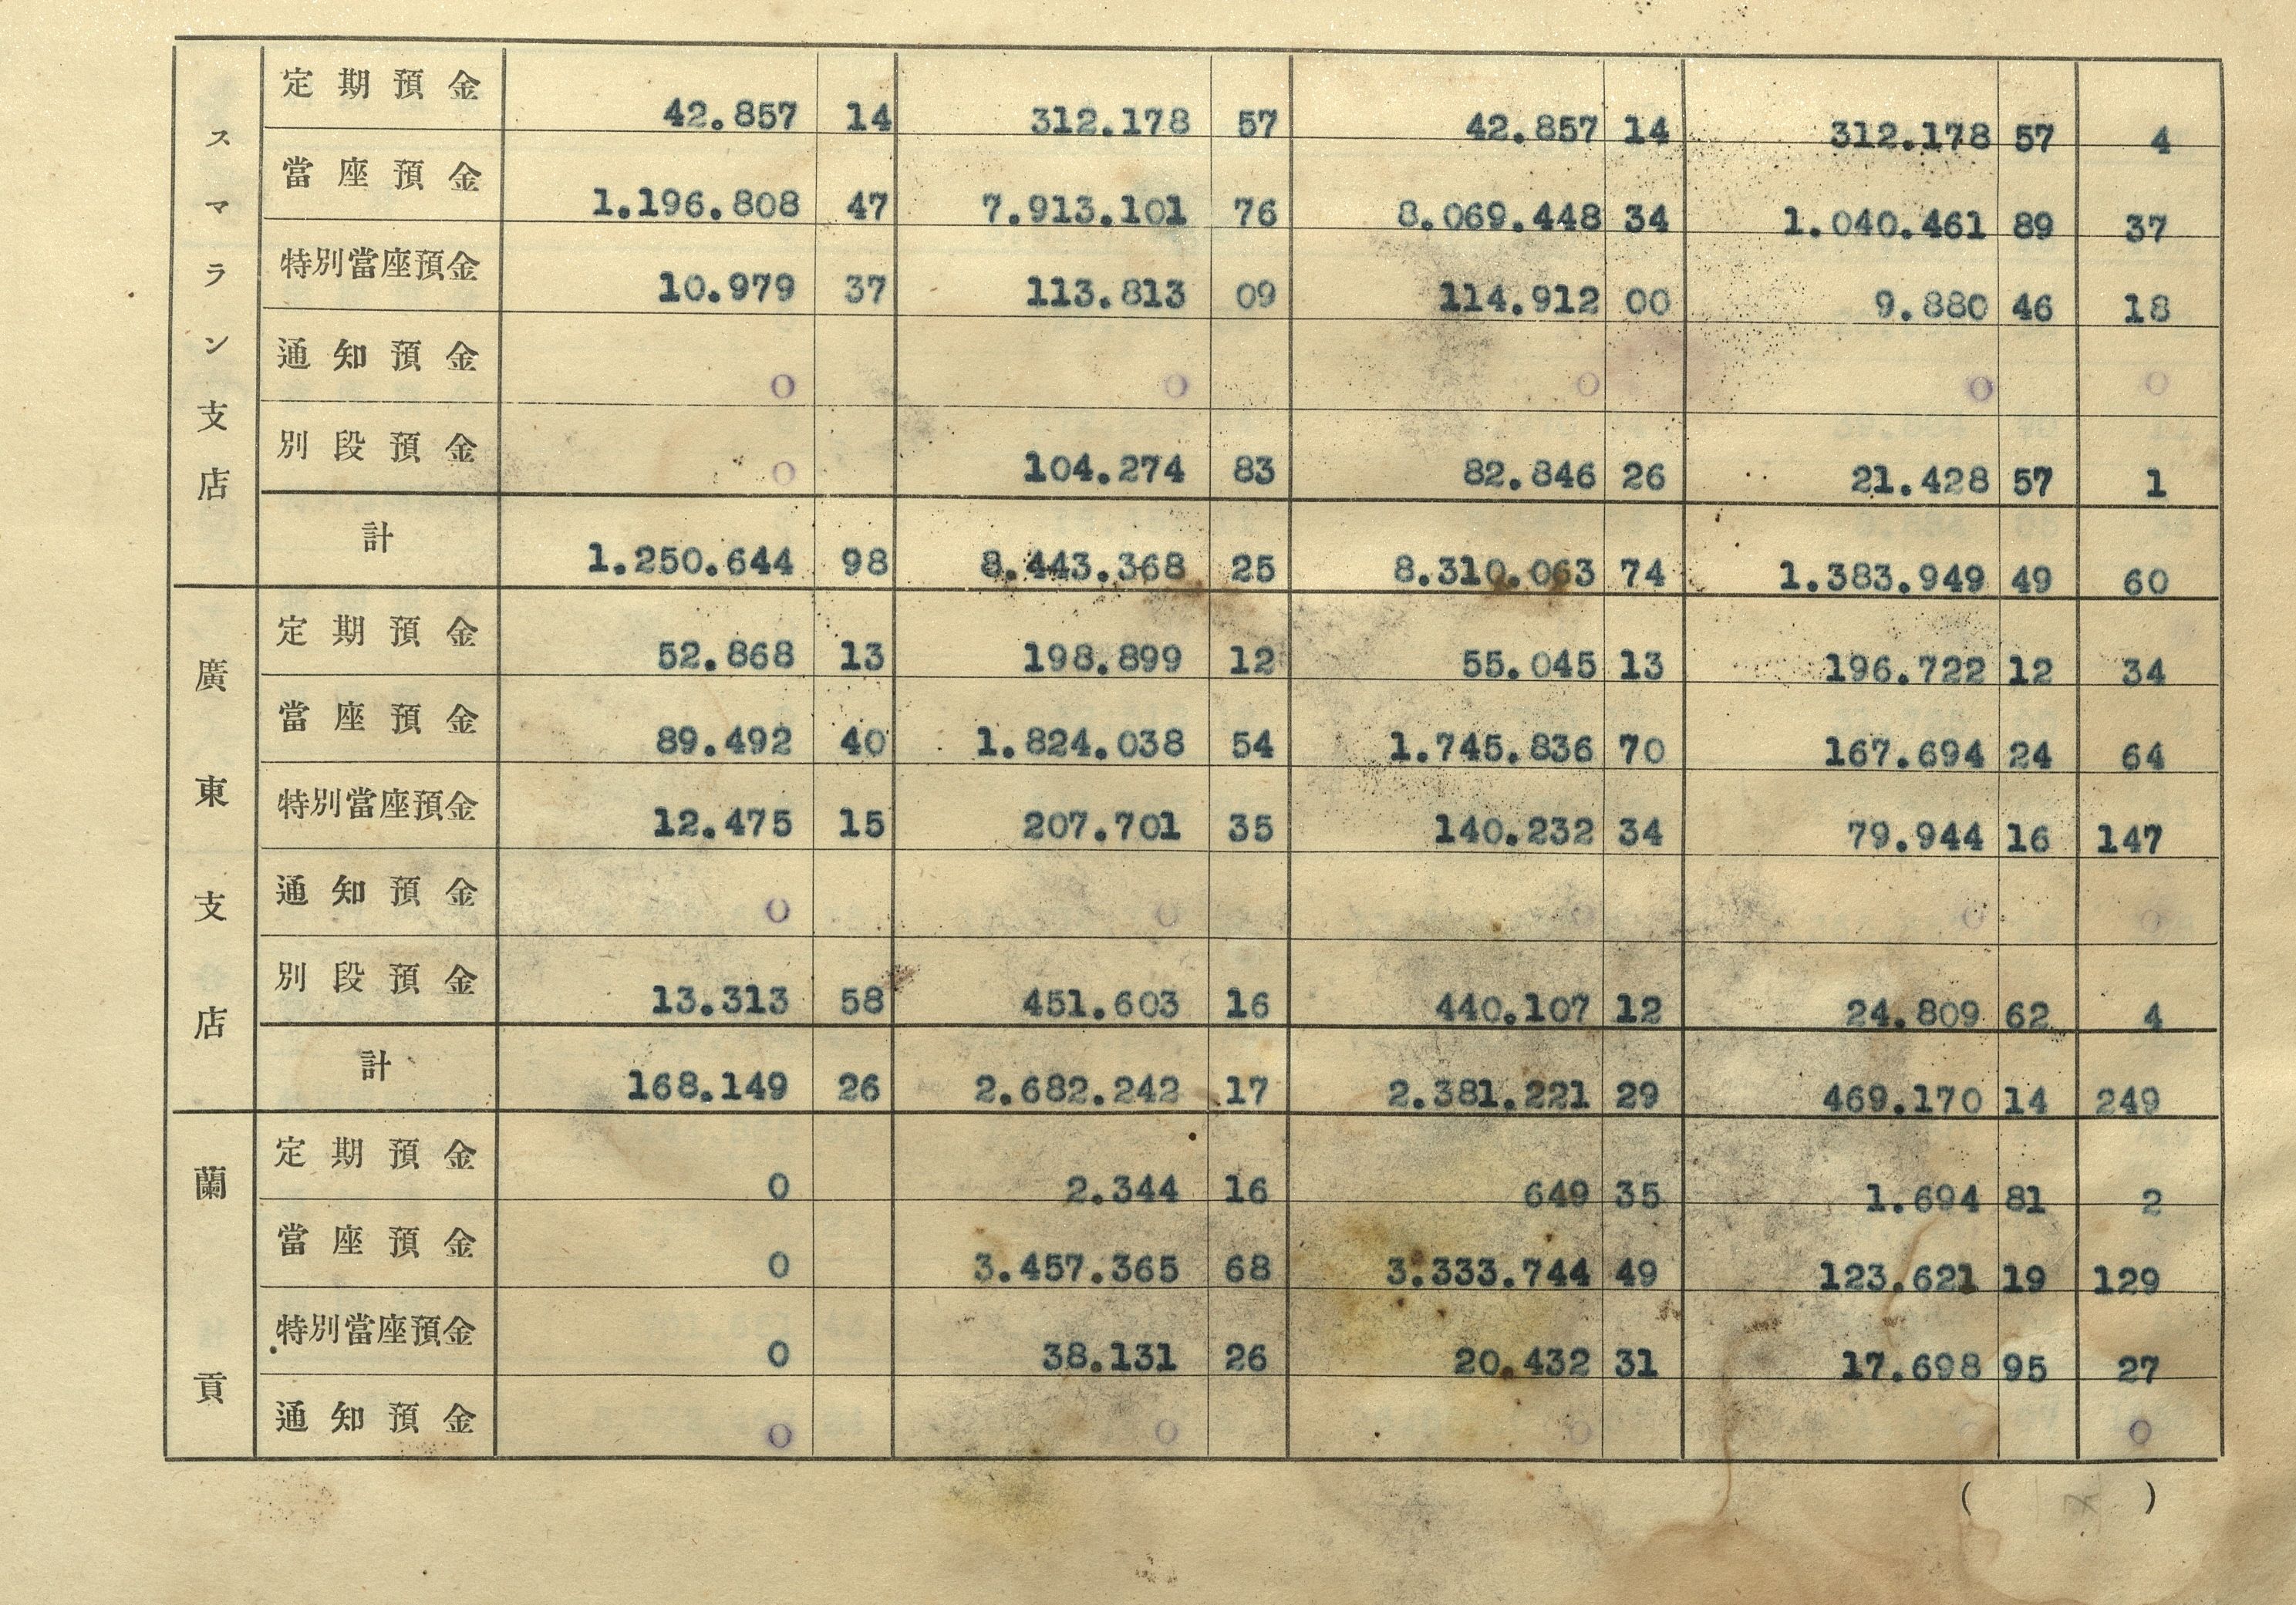 スマラン支店
定期預金 42.857 14 312.178 57 42.857 14 312.178 57 4
當座預金 1.196.808 47 7.913.101 76 8.069.448 34 1.040.461 89 37
特別當座預金 10.979 37 113.813 09 114.912 00 9.880 46 18
通知預金 0 0 0 0 0
別段預金 0 104.274 83 82.846 26 21.428 57 1
計 1.250.644 98 8.443.368 25 8.310.063 74 1.383.949 49 60
廣東支店
定期預金 52.868 13 198.899 12 55.045 13 196.722 12 34
當座預金 89.492 40 1.824.038 54 1.745.836 70 167.694 24 64
特別當座預金 12.475 15 207.701 35 140.232 34 79.944 16 147
通知預金 0 0 0 0 0
別段預金 13.313 58 451.603 16 440.107 12 24.809 62 4
計 168.149 26 2.682.242 17 2.381.221 29 469.170 14 249
蘭貢
定期預金 0 2.344 16 649 35 1.694 81 2
當座預金 0 3.457.365 68 3.333.744 49 123.621 19 129
特別當座預金 0 38.131 26 20.432 31 17.698 95 27
通知預金 0 0 0 0 0
( )